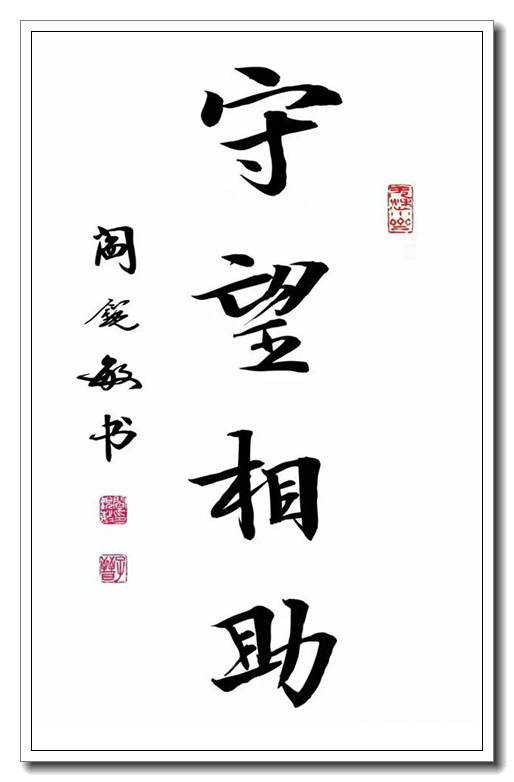 守望相助
阎锐敏书